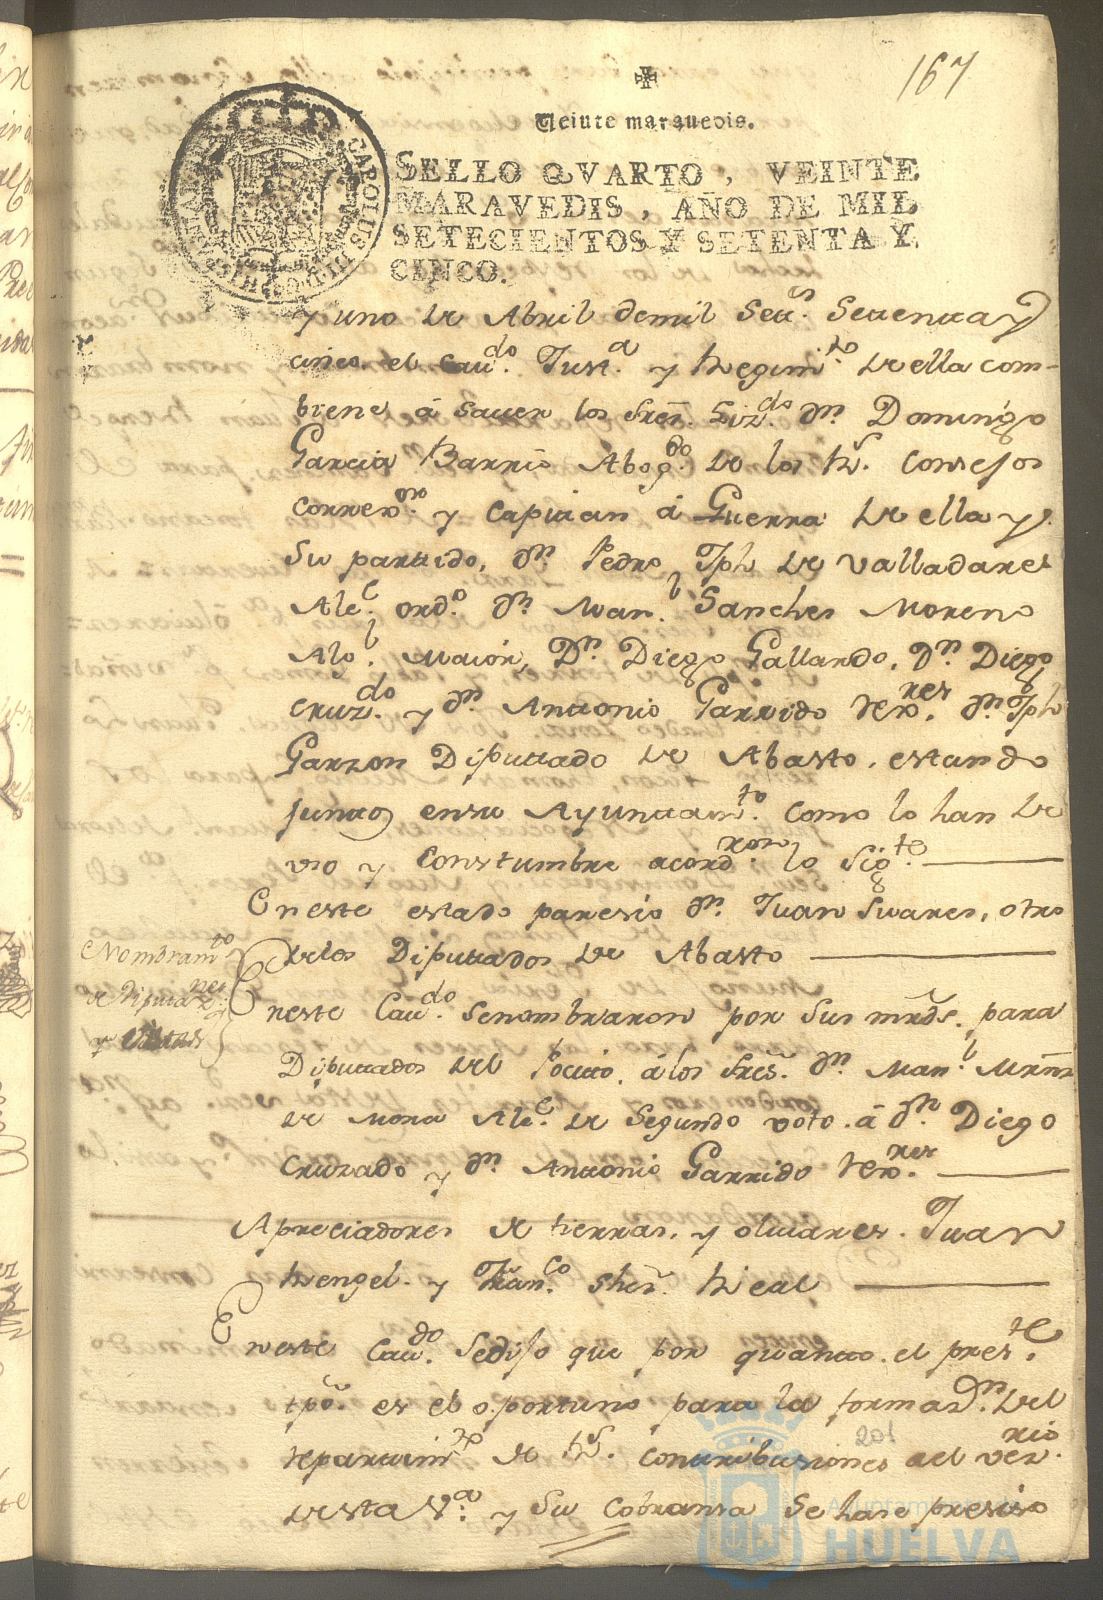 167
Veinte marauedis.
SELLO QVARTO, VEINTE
MARAVEDIS, AÑO DE MIL
SETECIENTOS Y SETENTA Y
CINCO.
CAROLUS III D.G. HISPANIAR
y uno de Abril demil Setts. Setenta y
cinco el Caudo. Justa. y Regimto. de ella com-
biene á sauer los Sres. Lizdo. Dn. Domingo
Garcia Barrio Abogdo. de los Rs. Consejos
Correxor. y Capitan á Guerra de ella y
Su partido, Dn. Pedro Jph de Valladares
Alce. ordo. Dn. Manl. Sanches Moreno
Algl. Maior, Dn. Diego Gallardo, Dn. Diego
Cruzdo. y Dn. Antonio Garrido Rexres. Dn. Jph
Garzon Diputtado de Abasto, estando
juntos ensu Ayuntamto. como lo han de
vso y Constumbre acordron. lo Sigte.
Eneste estado paresio Dn. Juan Suares, otro
delos Diputtados de Abasto
Nombramto
de Diputaznes
y
Eneste Caudo. Senombraron por Sus mrds. para
Diputtados del Pocitto, á los Sres. Dn. Manl. Mrñz
de Mora Alce. de Segundo voto. á Dn. Diego
Cruzado y Dn. Antonio Garrido Rexres.
Apreciadores de tierras, y oliuares. Juan
Rengel. y Franco. Shez. Real
Eneste Caudo. Sedijo que por quanto. el preste.
tpo. es el oportuno para la formazn. del
repartimto de Rs. Contribusiones del vezrio.
desta Va. y Su Cobransa Se hase presiso
201
Ayuntamiento de
HUELVA